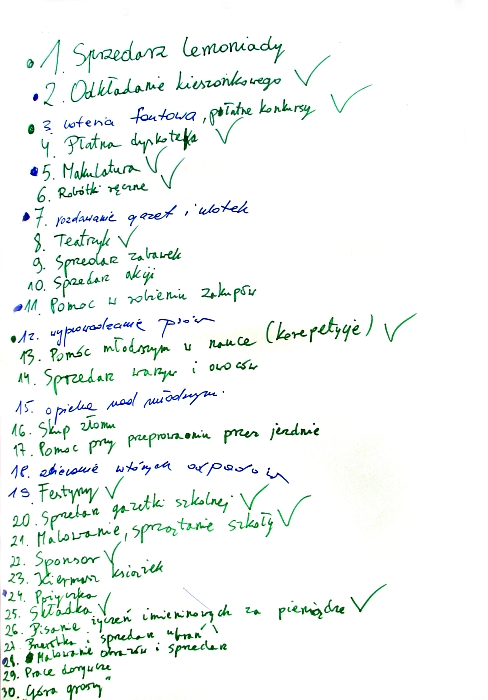 1. Sprzedarz lemoniady
2. Odkładanie kieszonkowego
3. loteria fantowa, płatne konkursy
4. Płatna dyskoteka
5. Makulatura
6. Robótki ręczne
7. rozdawanie gazet i ulotek
8. Teatrzyk
9. Sprzedarz zabawek
10. Sprzedarz akcji
11. Pomoc w robieniu zakupów
12. wyprowadzanie psów
13. Pomóc młodszym w nauce (korepetycje)
14. Sprzedarz warzyw i owoców
15. opieka nad młodszym.
16. Skup złomu
17. Pomoc przy przeprowadzaniu przez jezdnie
18. zbieranie wtórnych odpadów
19. Festyny
20. Sprzedarz gazetki szkolnej
21. Malowanie, sprzątanie szkoły
22. Sponsor
23. Kiermasz książek
24. Pożyczka
25. Składka
26. Pisanie życzeń imieninowych za pieniądze
27. i sprzedarz ubrań
28. Malowanie obrazów i sprzedarz
29. Prace dorywcze
30. "Góra grosza"